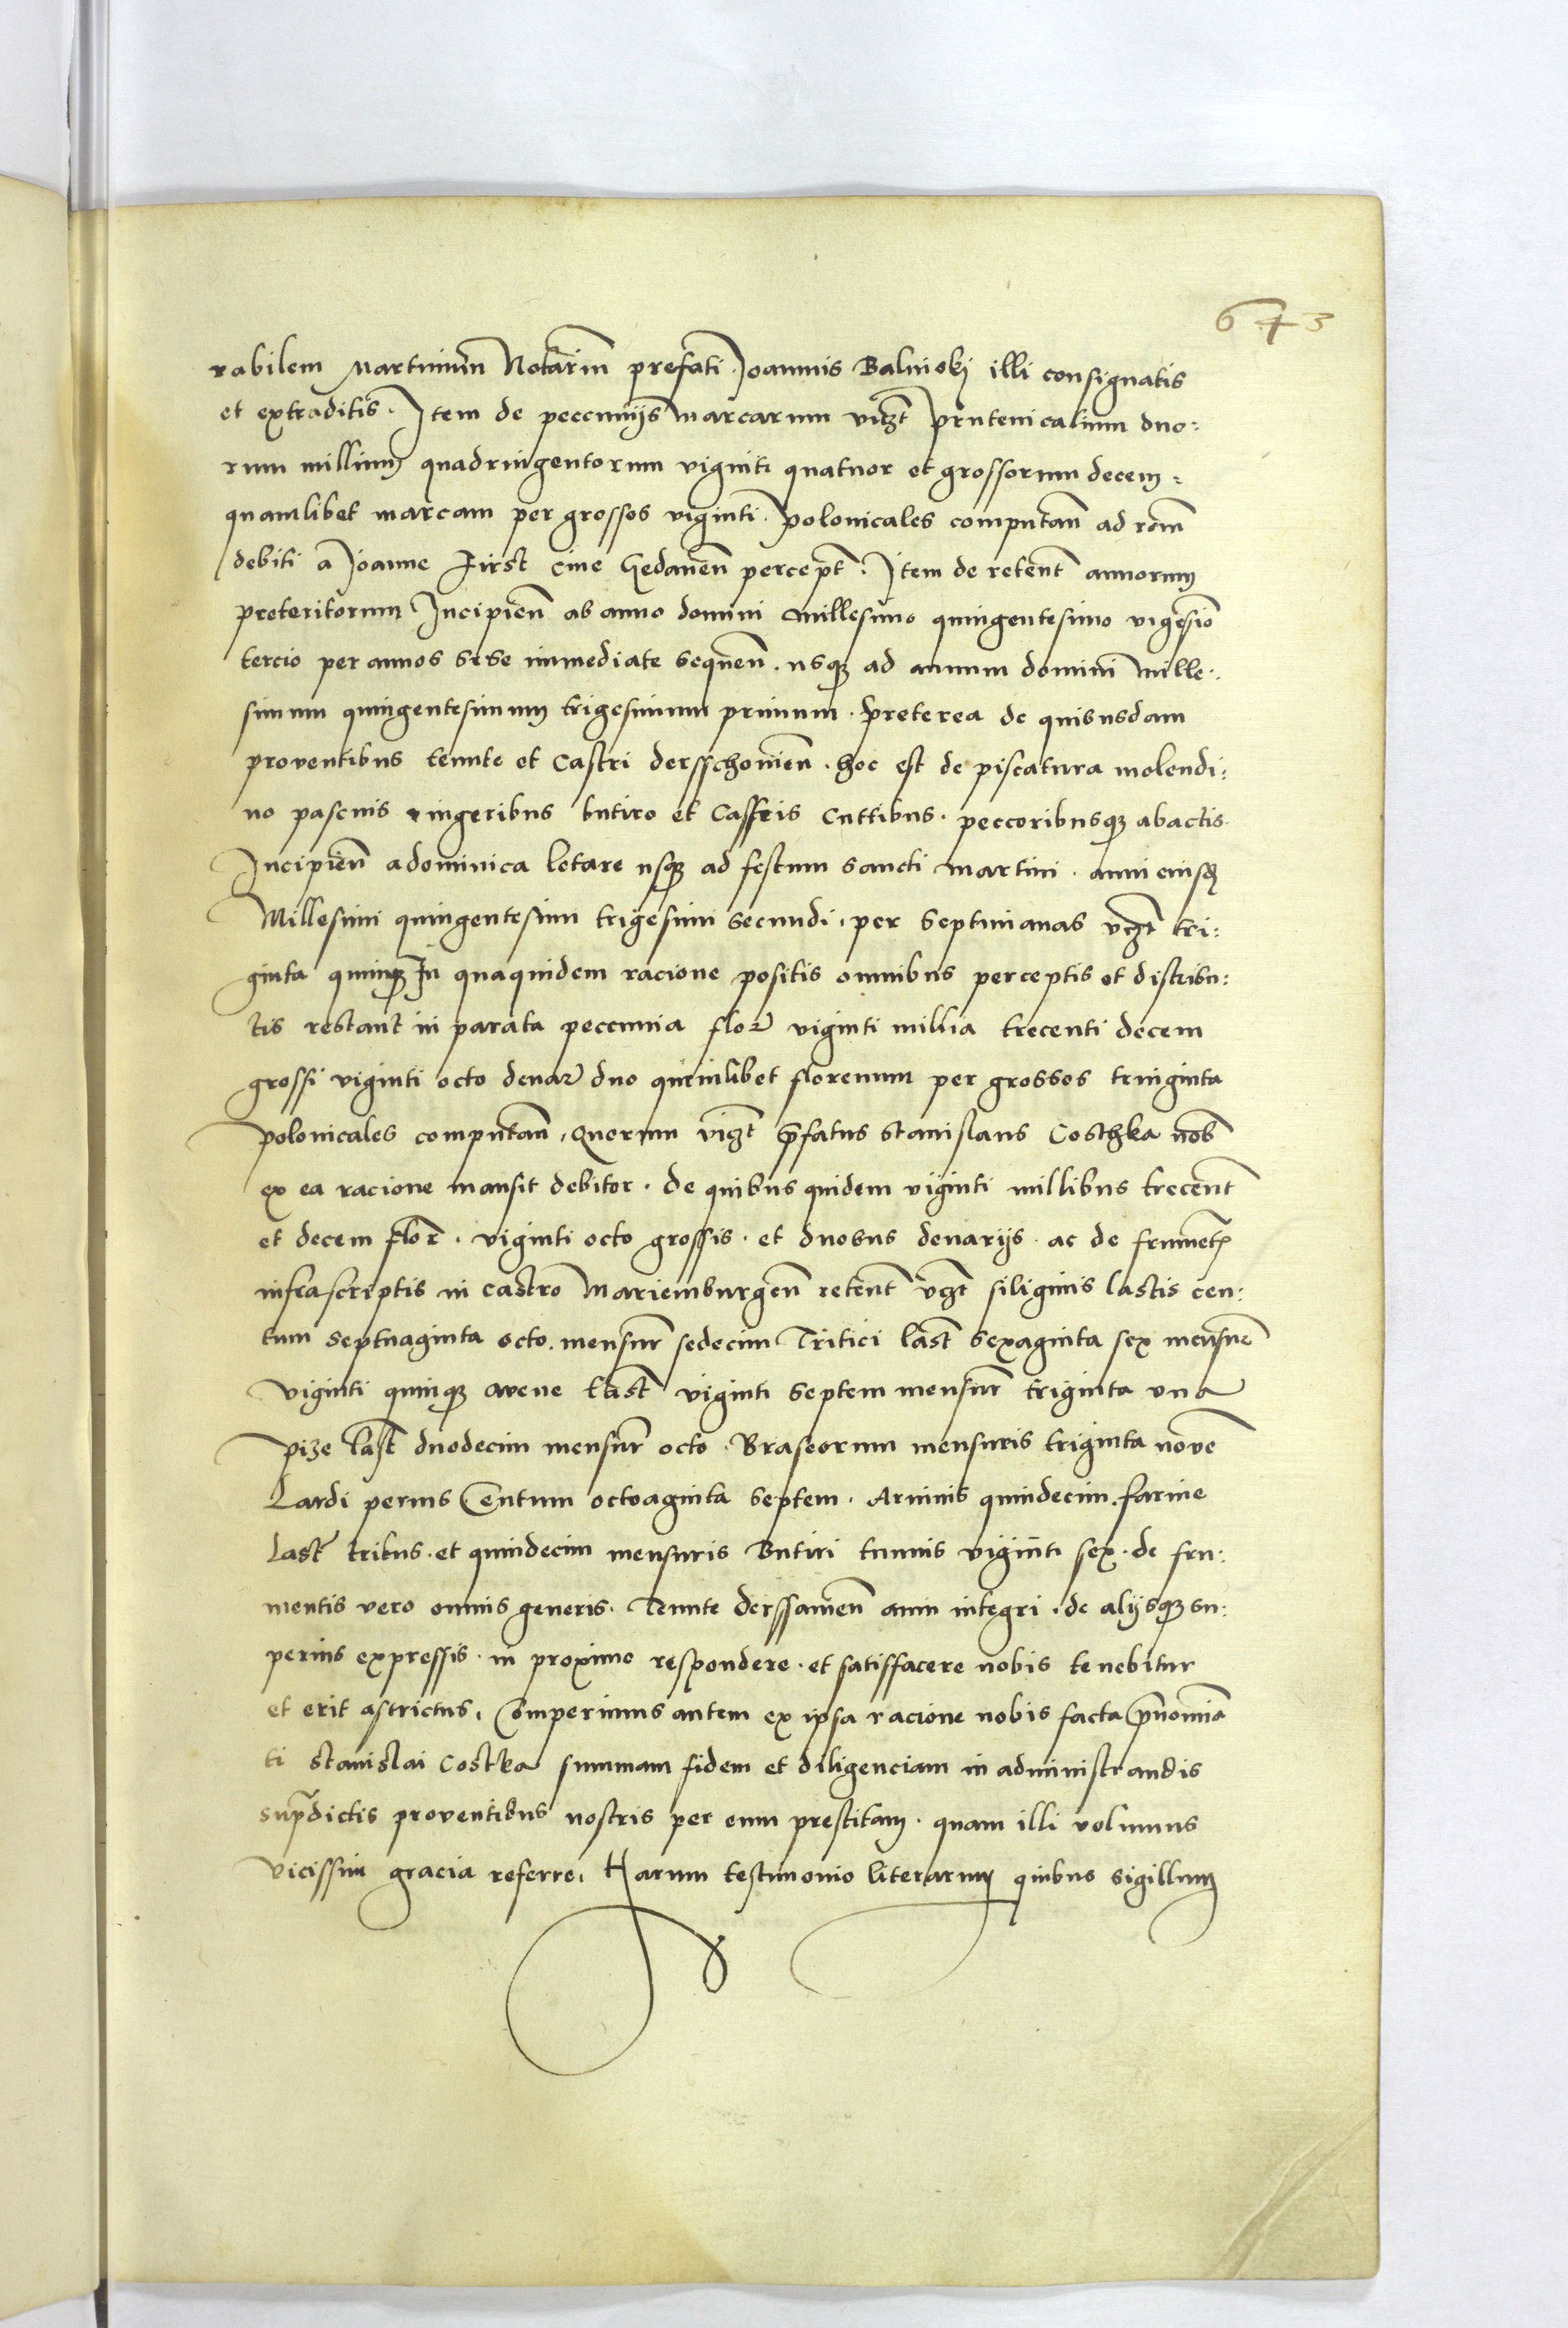 673
rabilem Martinum Notariũ prefati Joannis Balinski illi consignatis
et extraditis. Item de peccunijs marcarum vi&zt prutenicalium duo:
rum millium quadringentorum viginti quatuor et grossorum decem:
quamlibet marcam per grossos viginti polonicales computañ ad rõm
debiti a Joanne First ciue Gedaneñ percept̃. Item de retent̃ annorum
preteritorum Incipieñ ab anno domini millesimo quingentesimo vigesiõ
tercio per annos sese immediate sequeñ. usq̃ ad annum domini Mille:
simum quingentesimum trigesimum primum. preterea de quibusdam
proventibus tenute et Castri dersschovieñ. hoc est de piscatura molendi:
no pascuis iugeribus butiro et Casseis Cuttibus. peccoribusq̃ abactis.
Incipieñ a dominica letare usq̃ ad festum sancti martini. anni eiusdẽ
Millesimi quingentesimi trigesimi secundi. per septimanas vz̃t tri:
ginta quinq̃ In quaquidem racione positis omnibus perceptis et distribu:
tis restant in parata peccunia flor̃ viginti millia trecenti decem
grossi viginti octo denar̃ duo quemlibet florenum per grossos truiginta
polonicales computañ, Quorum viz̃t p̃fatus stanislaus Costhka nob̃
ex ea racione mansit debitor. de quibus quidem viginti millibus trecent̃
et decem flor̃. viginti octo grossis. et duobus denarijs. ac de frumẽtis
infrascriptis in castro Mariemburgeñ retent̃ vz̃t siliginis lastis cen:
tum septuaginta octo. mensur̃ sedecim Tritici last̃ sexaginta sex mensur̃
viginti quinq̃ avene last̃ viginti septem mensur̃ triginta una
pize last̃ duodecim mensur̃ octo. Braseorum mensuris triginta novẽ
Lardi pernis Centum octoaginta septem. Arvinis quindecim. farine
last̃ tribus. et quindecim mensuris Butiri tunnis viginti sex. de fru:
mentis vero omnis generis. Tenute derssavieñ anni integri. de alijsq̃ su:
perius expressis. in proximo respondere. et satisfacere nobis tenebitur
et erit astrictus. Comperimus autem ex ipsa racione nobis facta p̃nominã
ti stanislai Costka summam fidem et diligenciam in administrandis
sup̃dictis proventibus nostris per eum prestitam. quam illi volumus
vicissim gracia referre. Harum testimonio literarum quibus sigillum